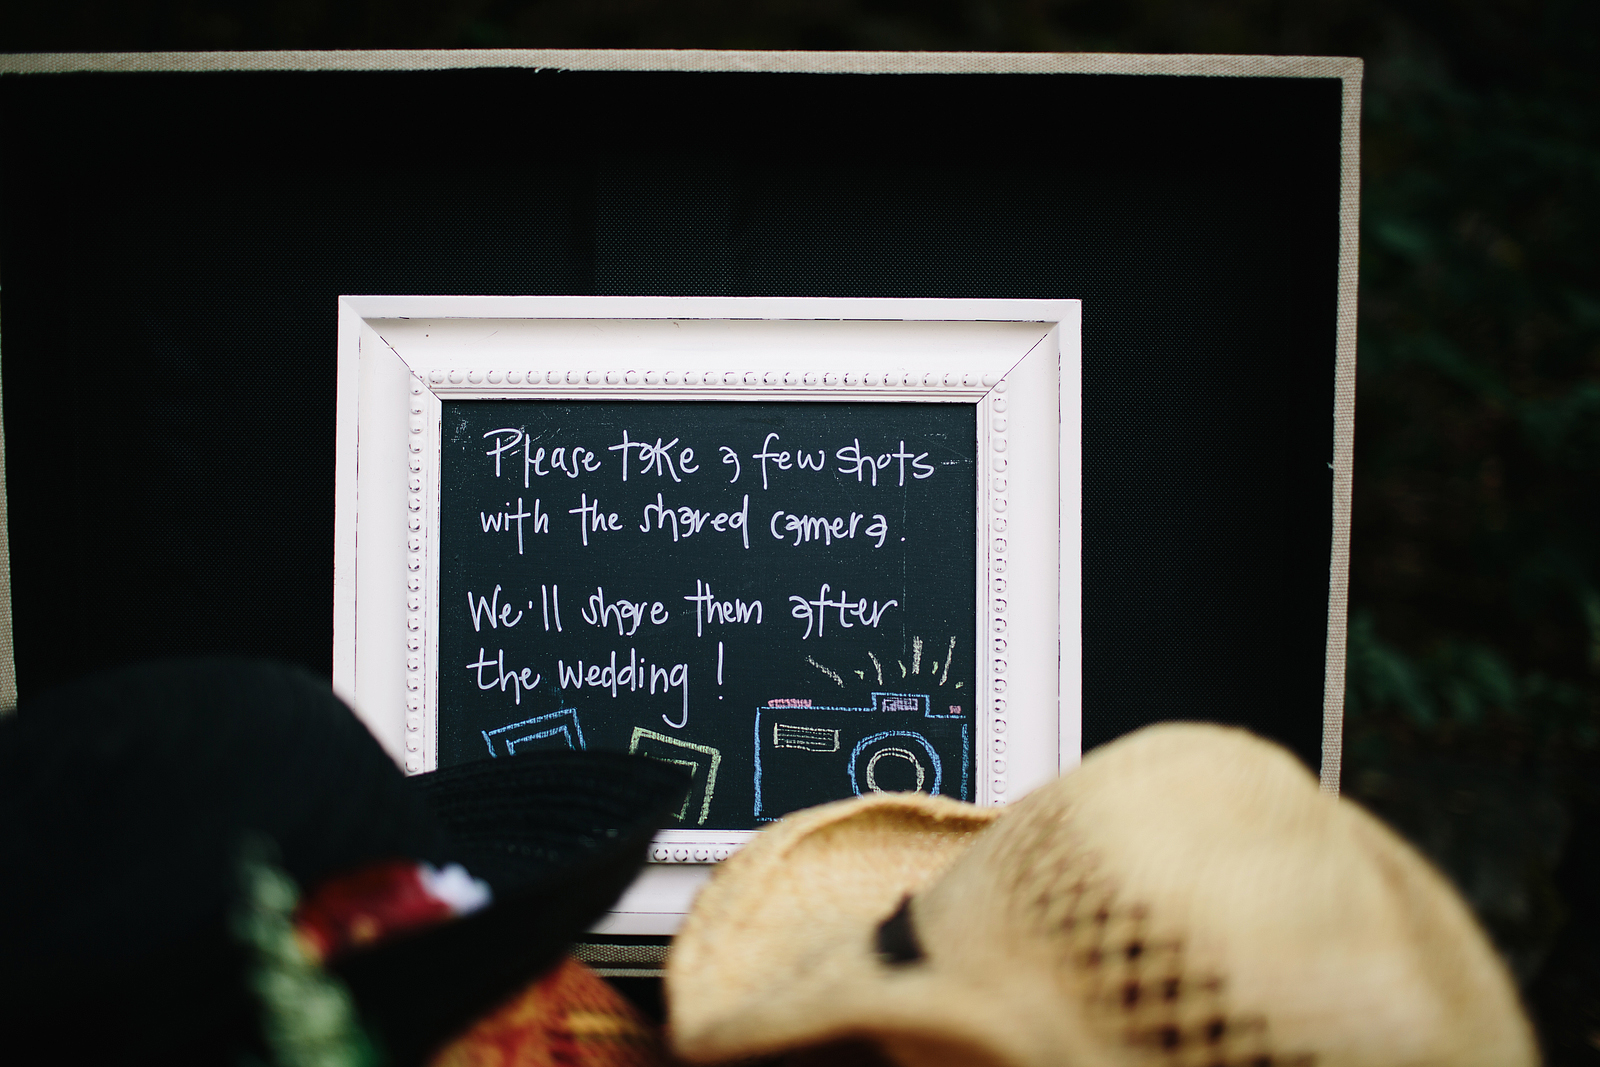 Please take a few shots
with the shared camera.
We'll share them after
the wedding!